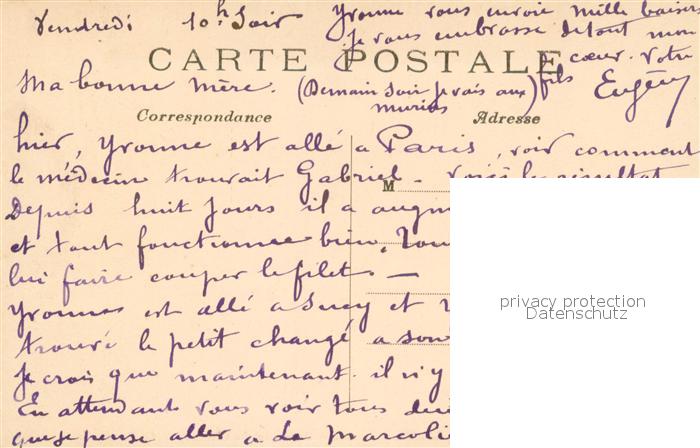 Vendredi 10h Soir
Yvonne vous envoie mille baisers
Je vous embrasse de tout mon
cœur. Votre
fils Eugène
CARTE POSTALE
Ma bonne Mère. (Demain soir je vais aux
Correspondance
Adresse
hier, Yvonne est allé a Paris, voir comment
le médecin trouvait Gabriel - voici le résultat
M
Depuis huit jours il a augm
et tout fonctionne bien,
lui faire couper le filet -
Yvonne est allé a Sucy et
trouvé le petit changé a son
Je crois que maintenant il n'y
En attendant vous voir tous
que je pense aller a La
privacy protection
Datenschutz